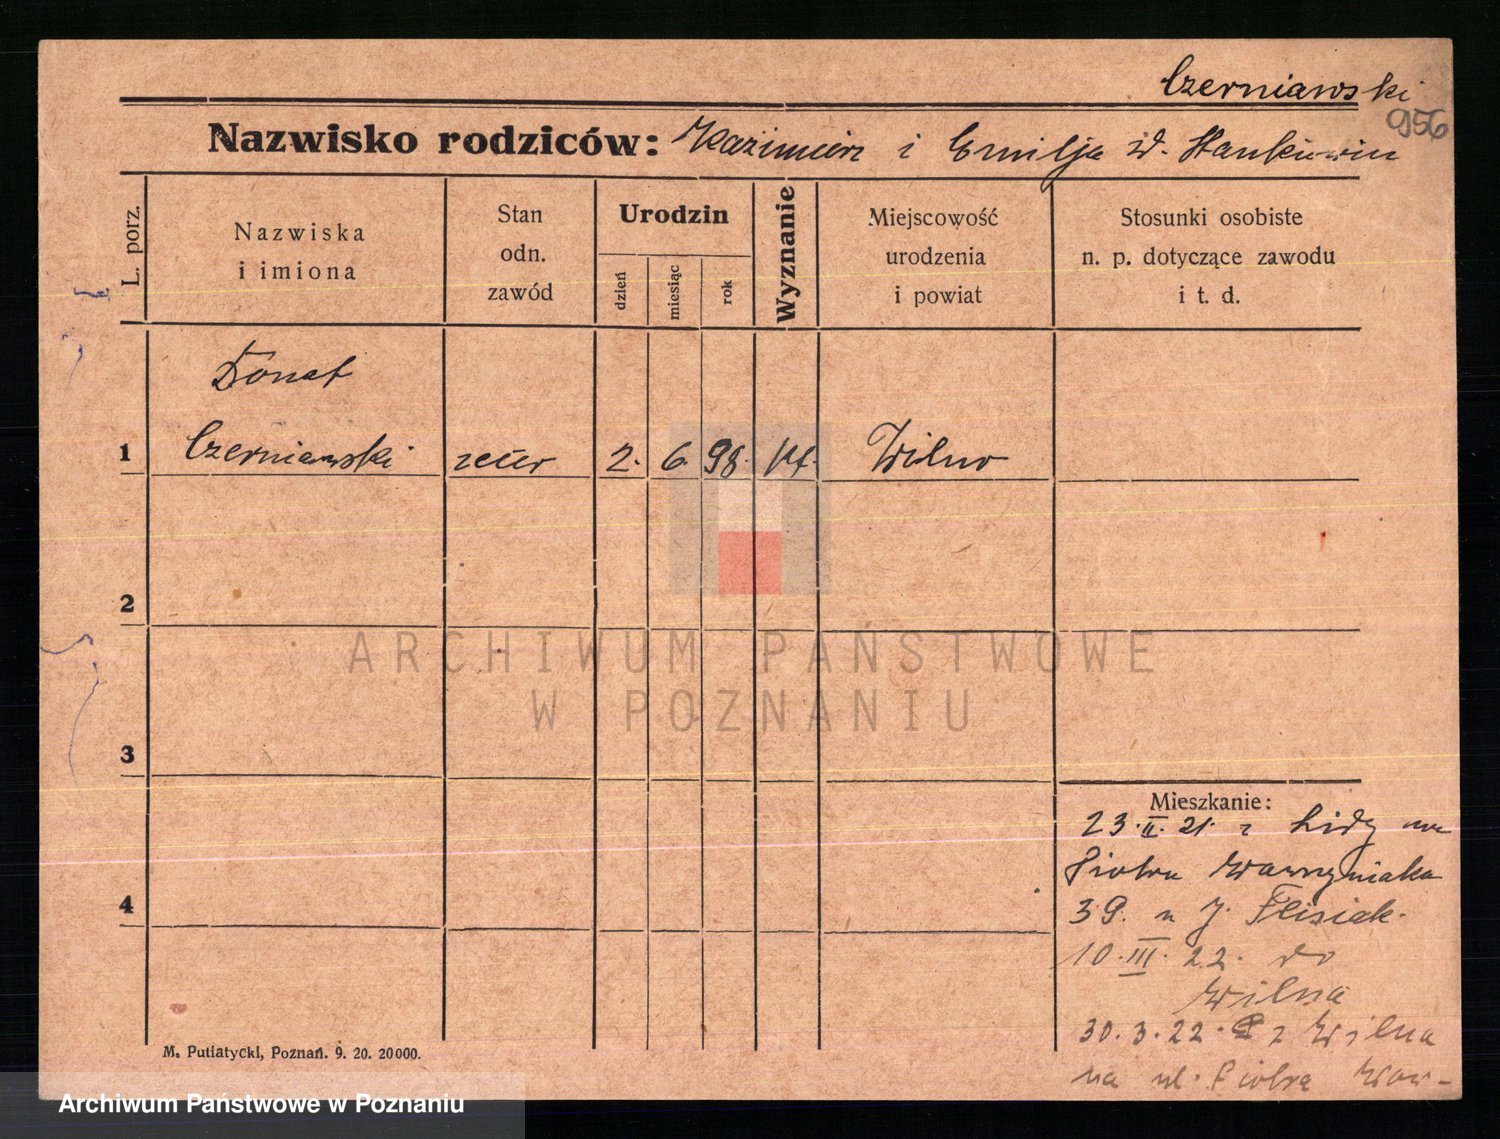 Czerniawski
956
Nazwisko rodziców: Kazimierz i Emilja z d. Stankiewicz
L. porz.
Nazwiska
i imiona
Stan
odn.
zawód
Urodzin
dzień
miesiąc
rok
Wyznanie
Miejscowość
urodzenia
i powiat
Stosunki osobiste
n. p. dotyczące zawodu
i t. d.
Donat
1 Czerniawski 2. 6. 98. kt. Wilno
2
ARCHIWUM PAŃSTWOWE
W POZNANIU
3
Mieszkanie:
23.II.21. z Lidy na
Piotra Wawrzyniaka
4
39. u J. Flisiak.
10.III.22. do
Wilna
30.3.22. z Wilna
na ul. Piotra Waw-
M. Putiatycki, Poznań. 9. 20. 20000.
Archiwum Państwowe w Poznaniu